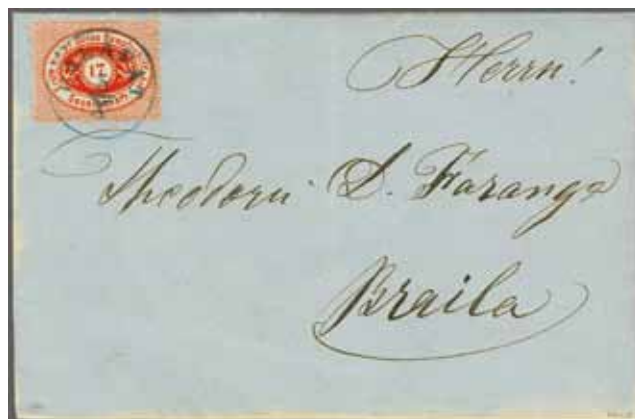 17
Herrn!
Theodoru S. Faranga
Braila